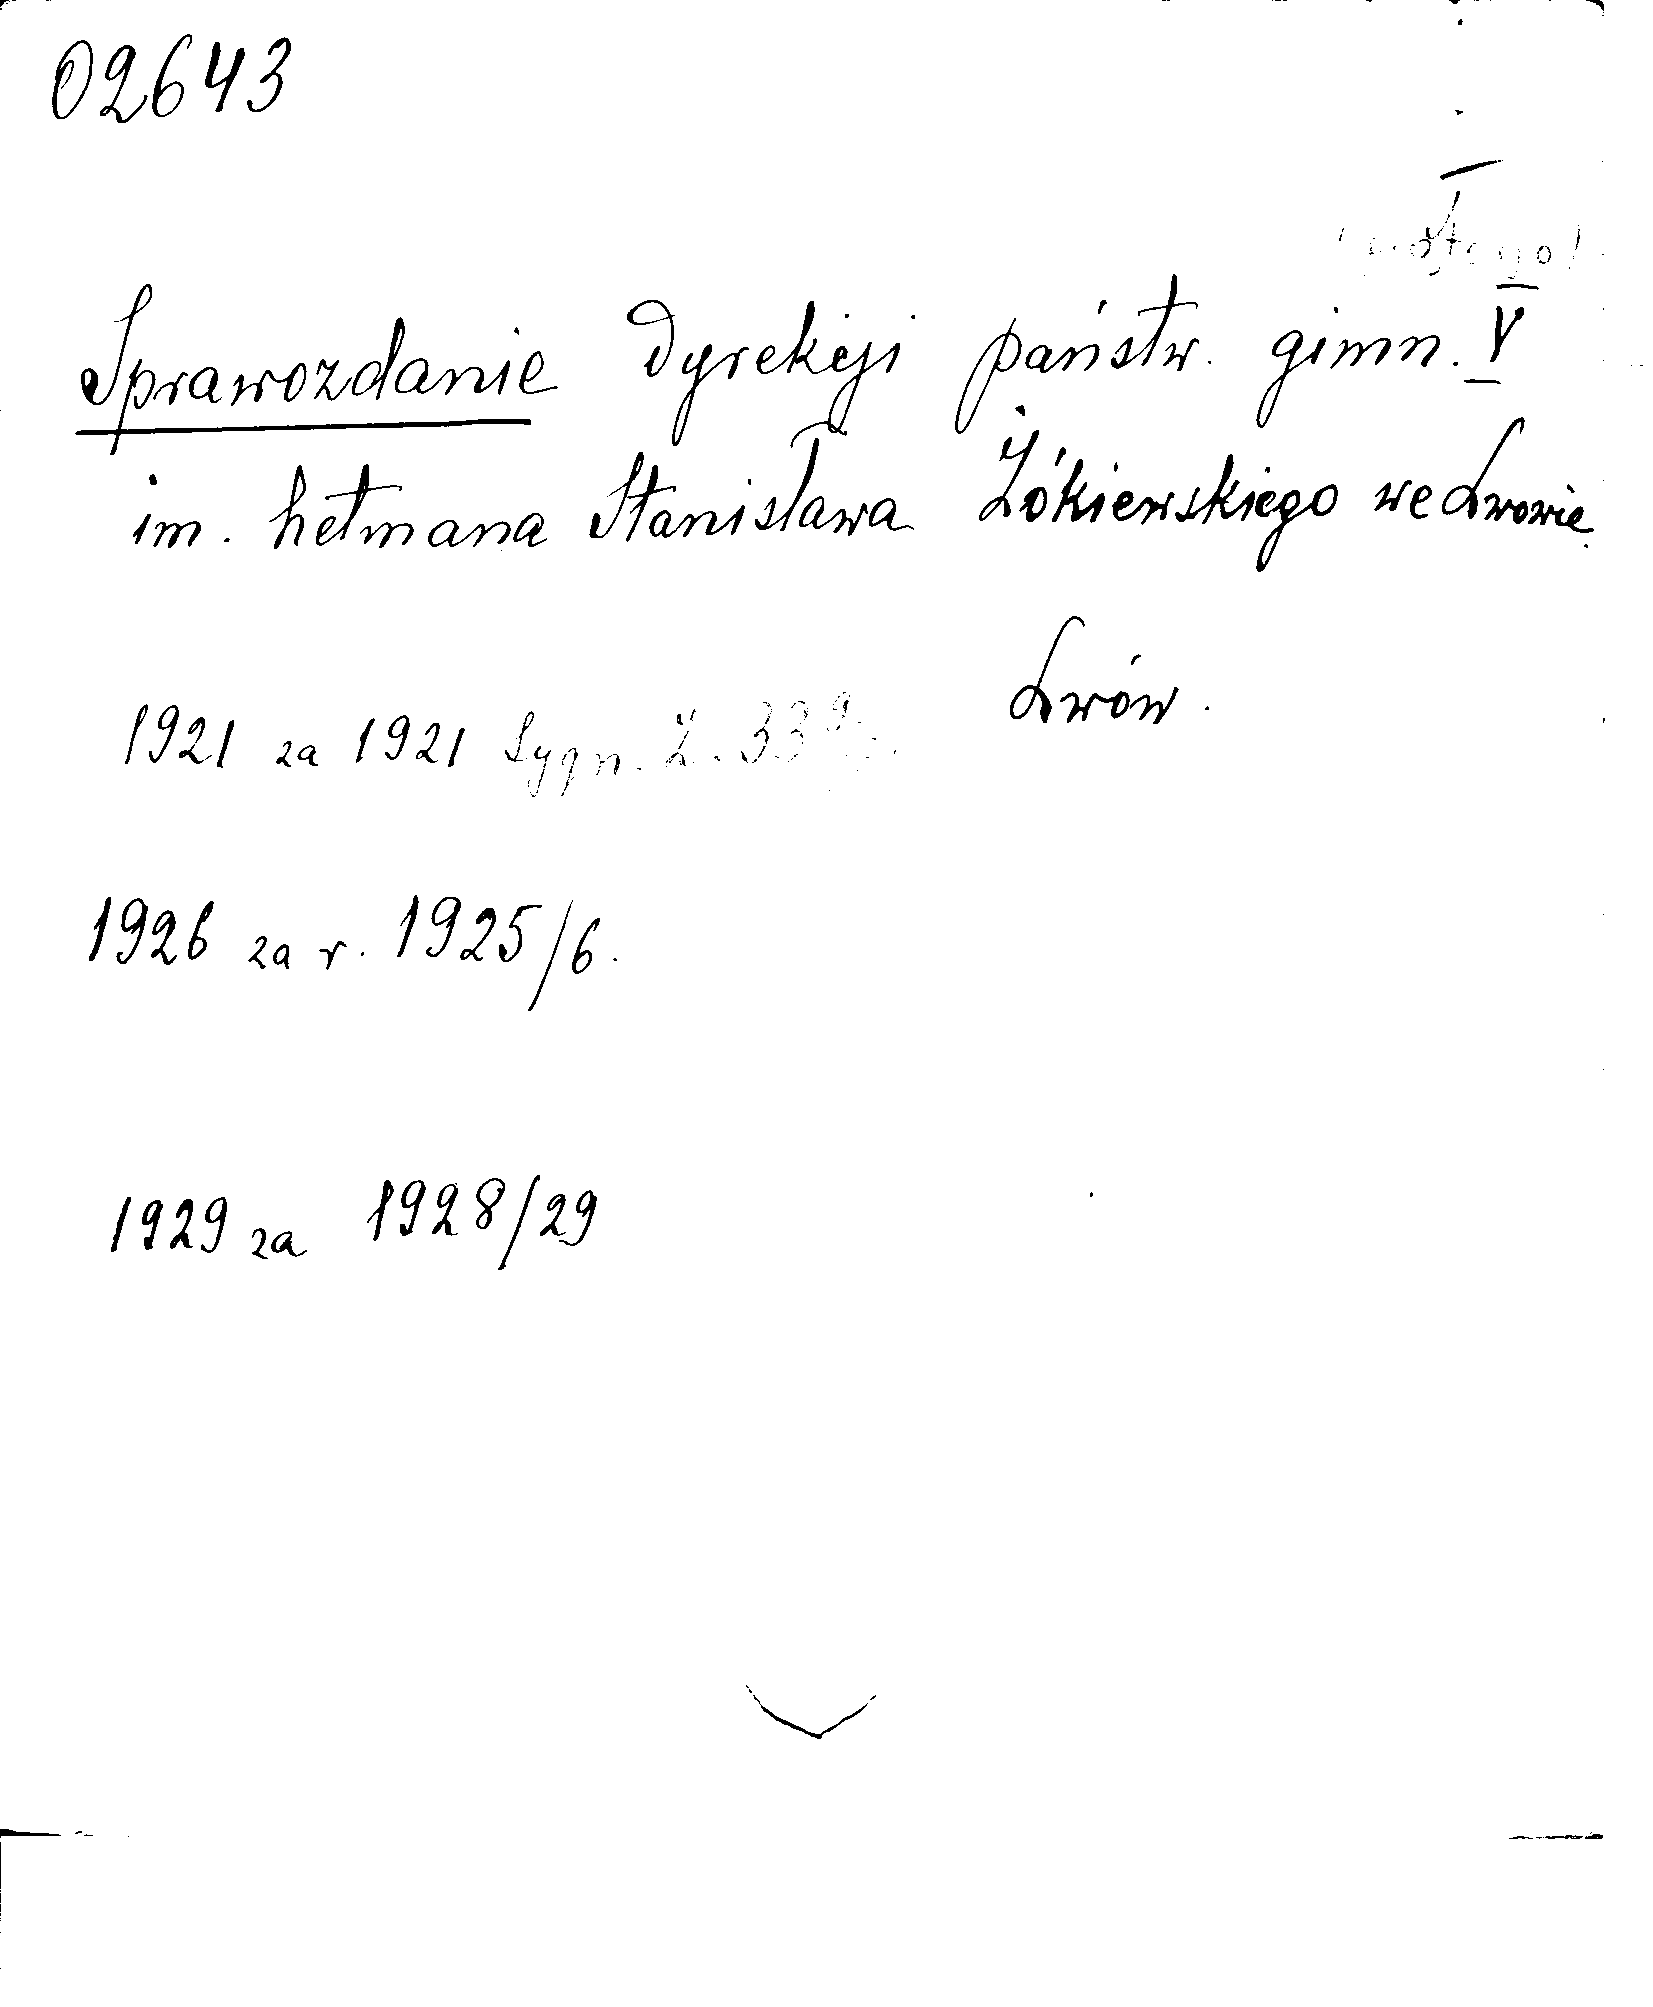 02643
Sprawozdanie Dyrekcji państw. gimn. V
im. hetmana Stanisława Żółkiewskiego we Lwowie.
Lwów.
1921 za 1921 Sygn. Ż. 33
1926 za r. 1925/6.
1929 za 1928/29